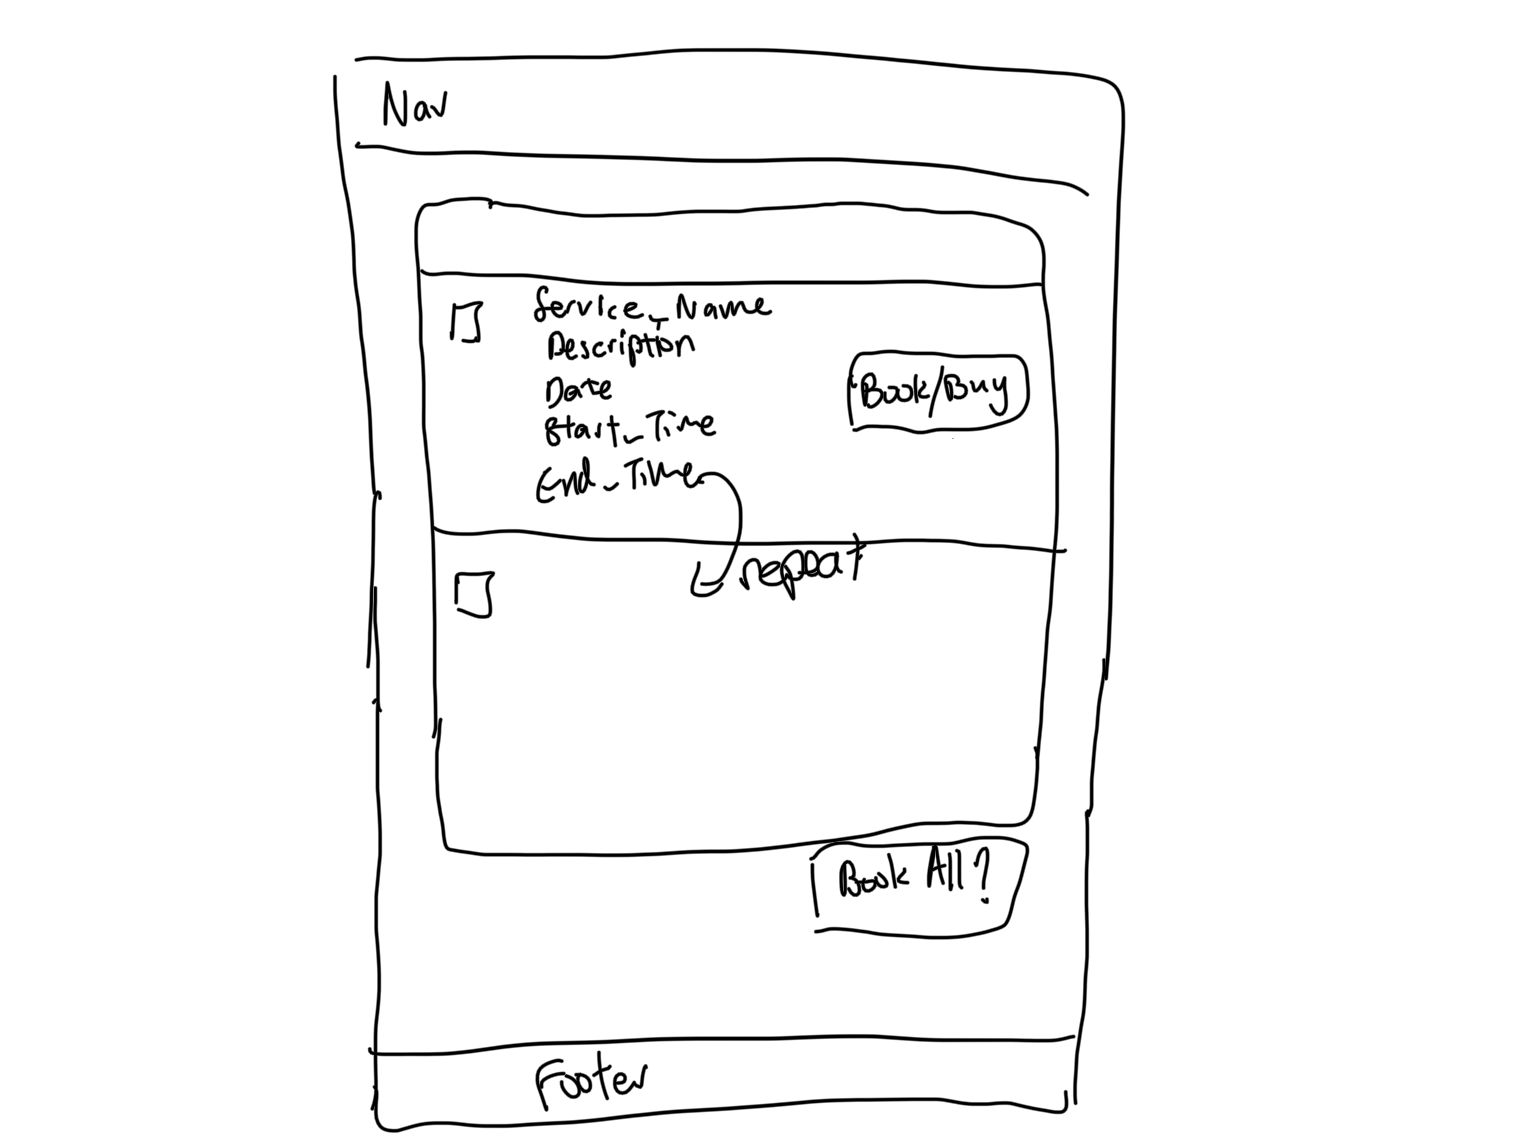 Nav
Service_Name
Description
Date
Start_Time
End_Time
Book/Buy
repeat
Book All?
Footer